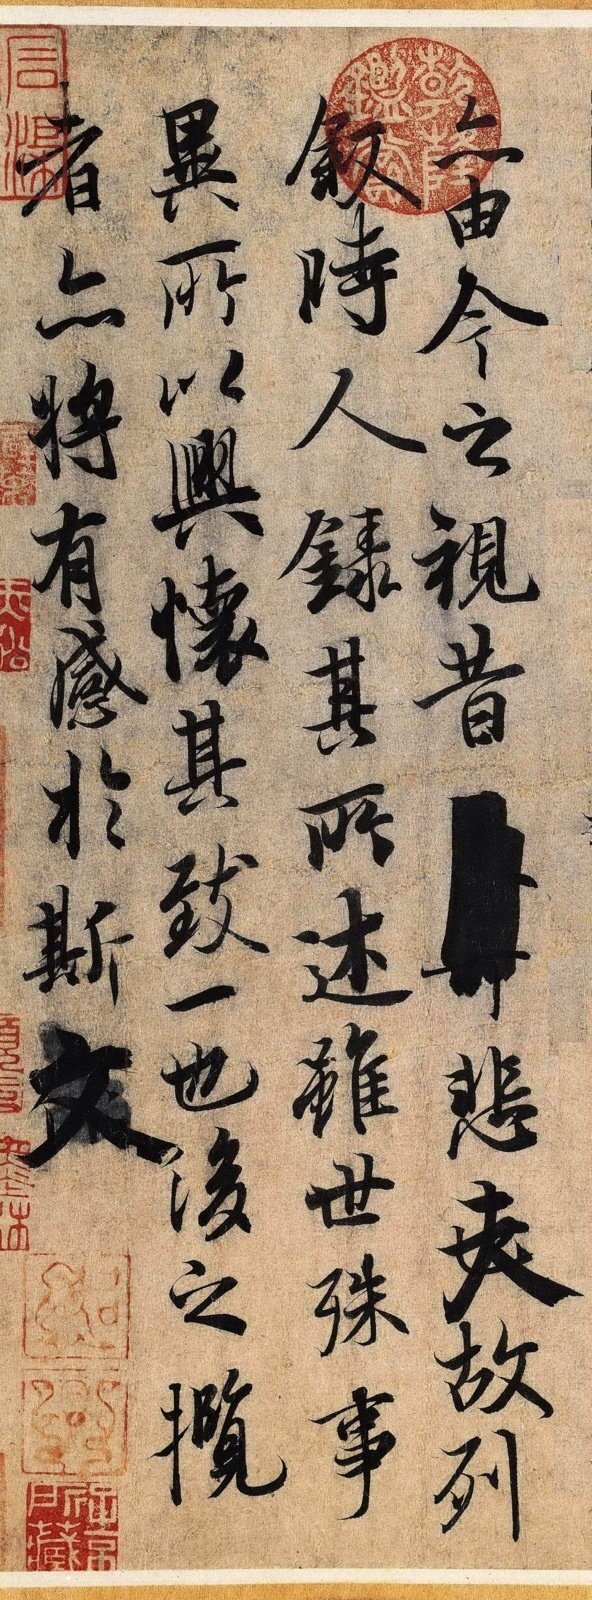 亦由今之視昔悲夫故列
敘時人錄其所述雖世殊事
異所以興懷其致一也後之攬
者亦將有感於斯文